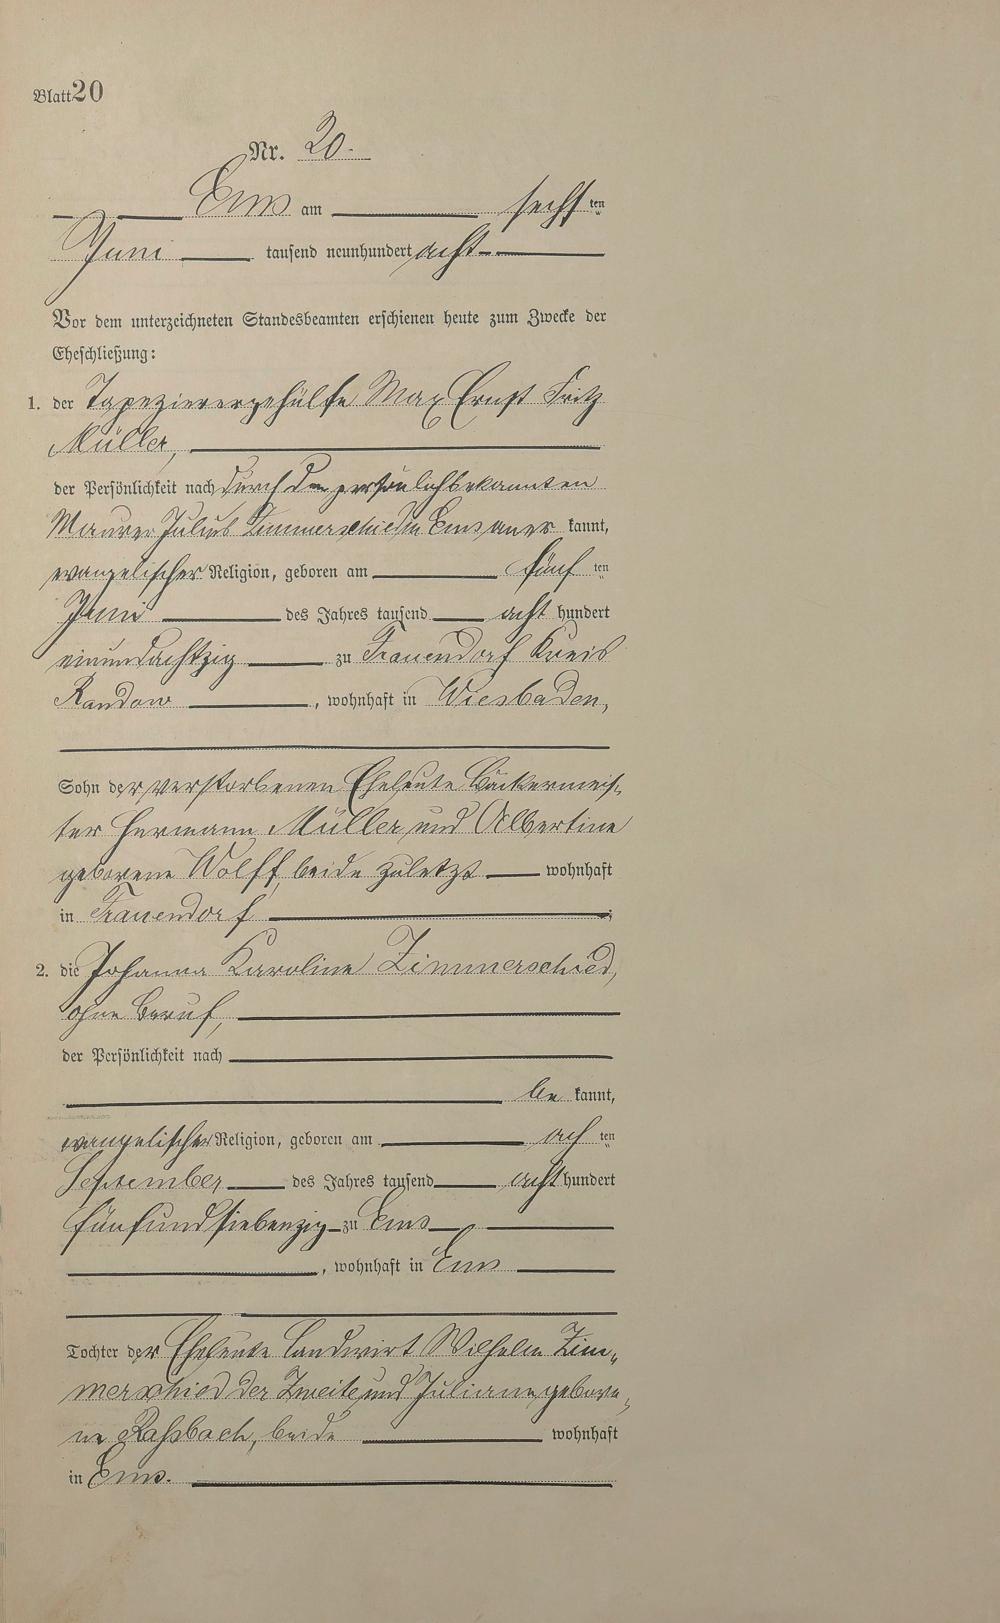 Blatt 20
Nr. 20.
Ems am sechsten
Juni tausend neunhundert acht
Vor dem unterzeichneten Standesbeamten erschienen heute zum Zwecke der
Eheschließung:
1. der Tapezierergehülfe Max Ernst Fritz
Müller,
der Persönlichkeit nach durch den persönlich bekannten
Maurer Julius Zimmerschied in Ems aner kannt,
evangelischer Religion, geboren am fünften
Juni des Jahres tausend acht hundert
einundachtzig zu Frauendorf Kreis
Randow, wohnhaft in Wiesbaden,
Sohn der verstorbenen Eheleute Bäckermeis-
ter Hermann Müller und Albertine
geborene Wolff, beide zuletzt wohnhaft
in Frauendorf;
2. die Johanna Karoline Zimmerschied,
ohne Beruf,
der Persönlichkeit nach
be kannt,
evangelischer Religion, geboren am achten
September des Jahres tausend acht hundert
fünfundsiebenzig zu Ems
, wohnhaft in Ems
Tochter der Eheleute Landwirt Wilhelm Zim-
merschied der Zweite und Juliane gebore-
ne Raßbach, beide wohnhaft
in Ems.